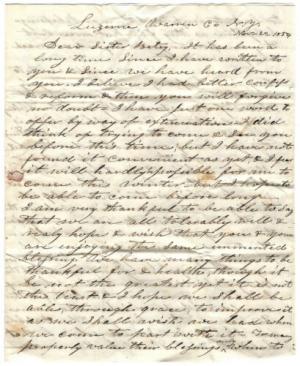 Luzerne Warren Co N.Y.
Nov 22 1854
Dear Sister Betsy, It has been a
long time since I have written to
you & since we have heard from
you I believe I had better confess
& reform & then you will forgive
no doubt I have just one word to
offer by way of extenuation I did
think of trying to come & see you
before this time, but I have not
found it convenient as yet & I fear
it will hardly possible for me to
come this winter but I hope to
be able to come before long
I am very thankful to be able today
that we are all tolerably well &
realy hope & wish that you & yours
are enjoying the same unmerited
blessing. We have many things to be
thankful for & health, though it
be not the greatest yet it is not
the least & I hope we shall be
able, through grace, to improve it
as we shall wish we had when
we come to part with it
properly value their blessings, when to